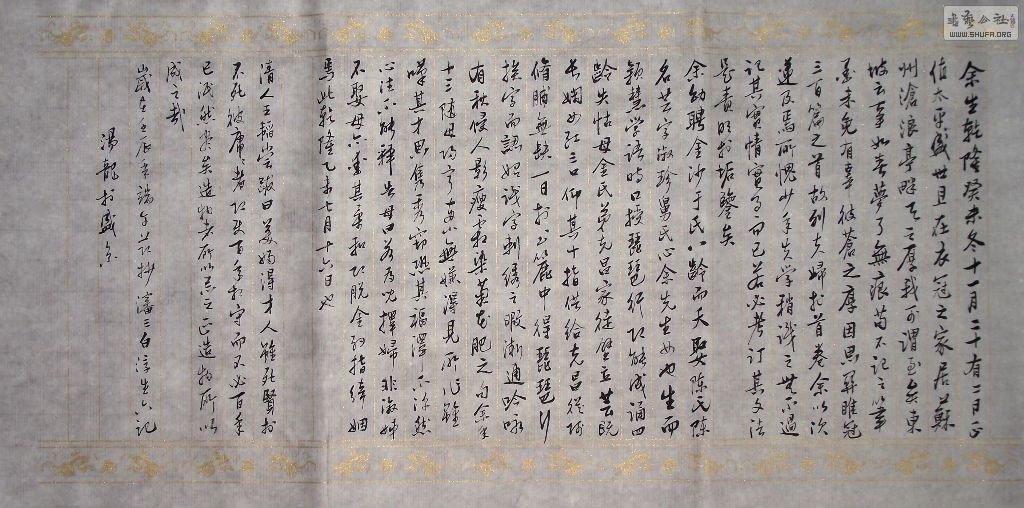 余生乾隆癸未冬十一月二十有二日正
值太平盛世且在衣冠之家居蘇
州滄浪亭畔天之厚我可謂至矣東
坡云事如春夢了無痕苟不記之筆
墨未免有辜彼蒼之厚因思關雎冠
三百篇之首故列夫婦於首卷余以次
遞及焉所愧少年失學稍識之無不過
記其實情實事而已若必考訂其文法
是責明於垢鑒矣
余幼聘金沙于氏八齡而夭娶陳氏陳
名芸字淑珍舅氏心余先生女也生而
穎慧學語時口授琵琶行即能成誦四
齡失怙母金氏弟克昌家徒壁立芸既
長嫻女紅三口仰其十指供給克昌從師
脩脯無缺一日於書簏中得琵琶行
挨字而認始識字刺繡之暇漸通吟咏
有秋侵人影瘦霜染菊花肥之句余年
十三隨母歸寧兩小無嫌得見所作雖
嘆其才思雋秀竊恐其福澤不深然
心注不能釋告母曰若為兒擇婦非淑姊
不娶母亦愛其柔和即脫金約指締姻
焉此乾隆乙未七月十六日也
清人王韜嘗跋曰美婦得才人雖死賢於
不死彼庸庸者即使百年相守而不必百年
已泯然盡矣造物所以忌之正造物所以
成之哉
歲在壬辰年端午節抄瀋三白浮生六記
湯龍於盛京
書藝公社
WWW.SHUFA.ORG